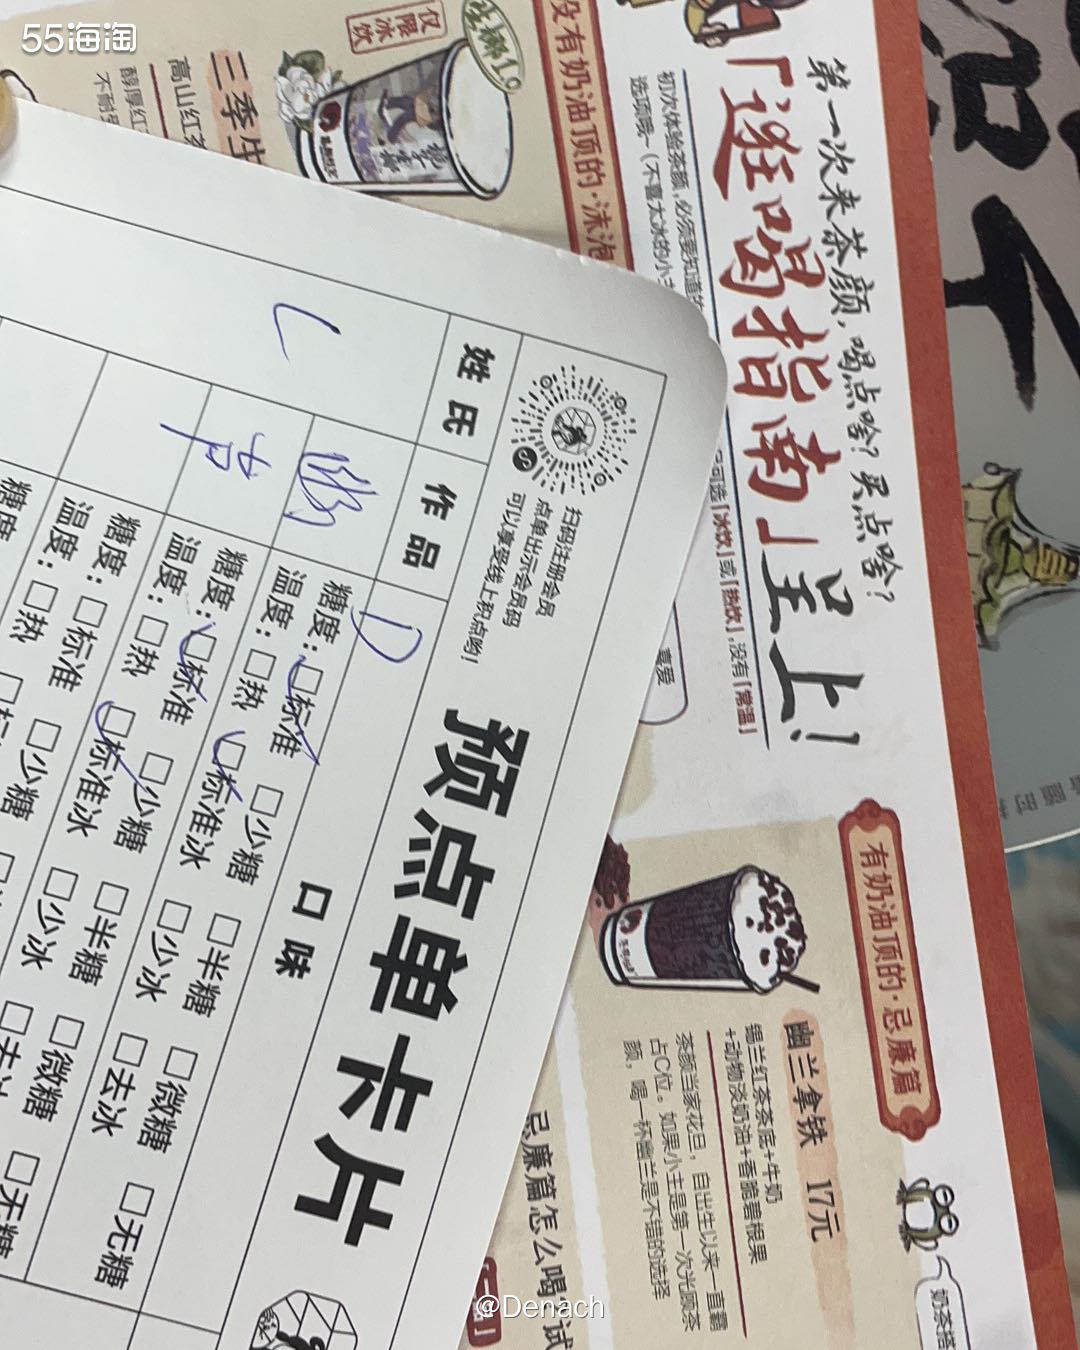 55海淘
第一次来茶颜,喝点啥?买点啥?
「逛喝指南」呈上!
初次体验茶颜,必须要知道的
选项哦~(不喜太冰的小主
可选「冰饮」或「热饮」,没有「常温」
喜爱
没有奶油顶的·沫泡
仅限冰饮
三季
高山红茶
醇厚红
不耐
有奶油顶的·忌廉篇
幽兰拿铁 17元
锡兰红茶茶底+牛奶
+动物淡奶油+香脆碧根果
茶颜当家花旦,自出生以来一直霸
占C位。如果小主是第一次光顾茶
颜,喝一杯幽兰是不错的选择
奶茶搭
忌廉篇怎么喝
试
预点单卡片
扫码注册会员
点单出示会员码
可以享受线上积点哟!
姓氏
L
作品
口味
D
幽
糖度:□标准 □少糖 □半糖 □微糖 □无糖
温度:□热 □标准冰 □少冰 □去冰
声
糖度:□标准 □少糖 □半糖 □微糖 □无糖
温度:□热 □标准冰 □少冰 □去冰
糖度:□标准 □少糖
温度:□热
糖度
@Denach